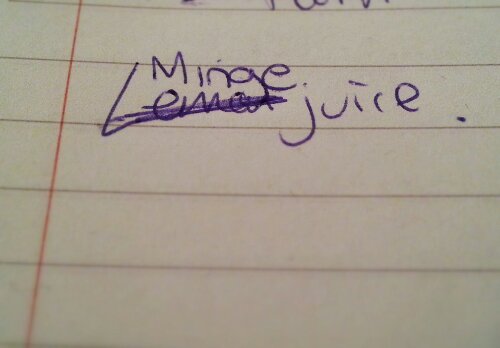 Minge
Lemon juice .